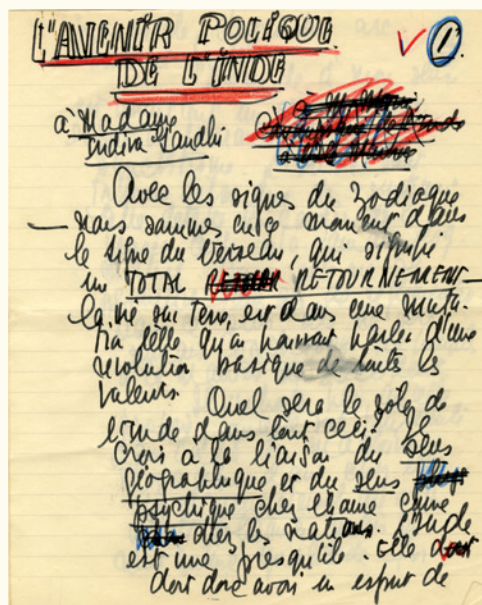 L'AVENIR POLIQUE
1
DE L'INDE
à Madame
Indira Gandhi
Avec les signes du zodiaque
— nous sommes en ce moment dans
le signe du Verseau, qui signifie
un TOTAL RETOURNEMENT —
la vie sur Terre, est dans une muta-
tion telle qu'on pourrait parler d'une
revolution basique de toutes les
valeurs.
Quel sera le role de
l'Inde dans tout ceci? Je
crois a la liaison du sens
géographique et du sens
psychique chez
chez les nations. L'Inde
est une presqu'ile. Elle
doit donc avoir un esprit de